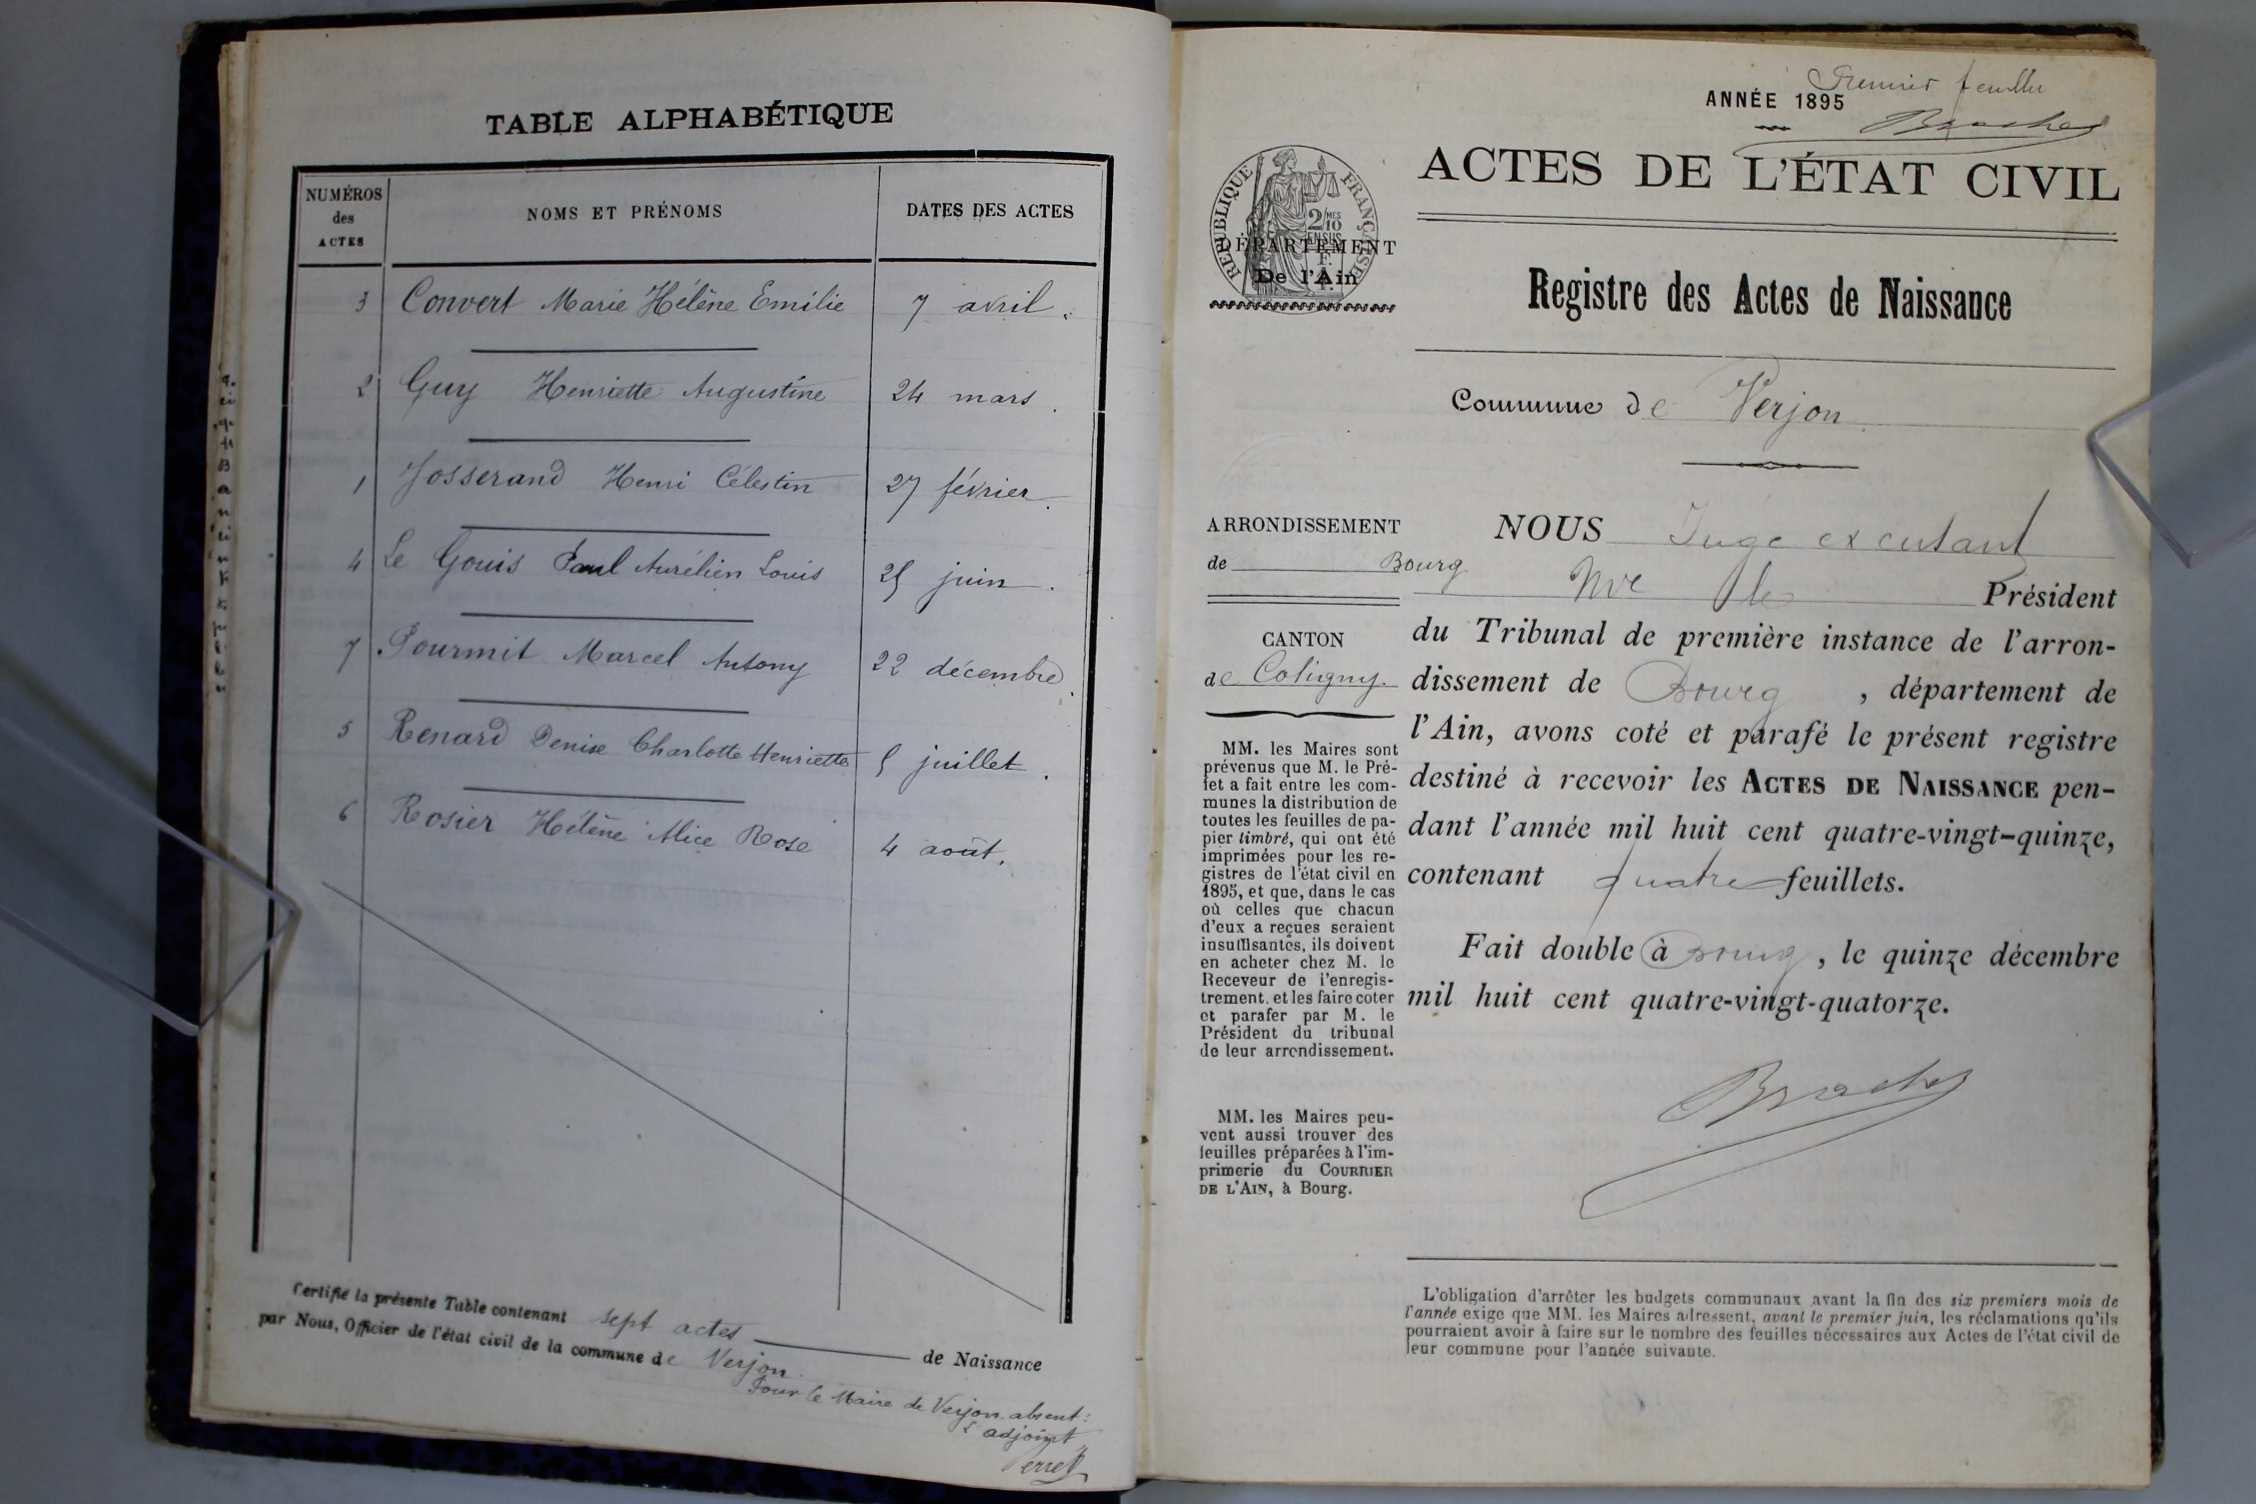 TABLE ALPHABÉTIQUE
NUMÉROS des ACTES NOMS ET PRÉNOMS DATES DES ACTES
3 Convert Marie Hélène Emilie 7 avril.
2 Guy Henriette Augustine 24 mars.
1 Josserand Henri Célestin 27 février.
4 Le Gouis Paul Aurélien Louis 25 juin.
7 Pourmit Marcel Antony 22 décembre.
5 Renard Denise Charlotte Henriette 5 juillet.
6 Rosier Hélène Alice Rose 4 août.
Certifié la présente Table contenant sept actes de Naissance
par Nous, Officier de l'état civil de la commune de Verjon.
Pour le Maire de Verjon absent:
L'adjoint
Perret
Premier feuillet
ANNÉE 1895
ACTES DE L'ÉTAT CIVIL
RÉPUBLIQUE FRANÇAISE
2/10 MES
EN SUS
DÉPARTEMENT
De l'Ain
Registre des Actes de Naissance
Commune de Verjon
ARRONDISSEMENT
de Bourg
CANTON
de Coligny.
MM. les Maires sont
prévenus que M. le Pré-
fet a fait entre les com-
munes la distribution de
toutes les feuilles de pa-
pier timbré, qui ont été
imprimées pour les re-
gistres de l'état civil en
1895, et que, dans le cas
où celles que chacun
d'eux a reçues seraient
insuffisantes, ils doivent
en acheter chez M. le
Receveur de l'enregis-
trement, et les faire coter
et parafer par M. le
Président du tribunal
de leur arrondissement.
MM. les Maires peu-
vent aussi trouver des
feuilles préparées à l'im-
primerie du COURRIER
DE L'AIN, à Bourg.
NOUS Juge
le Président
du Tribunal de première instance de l'arron-
dissement de Bourg, département de
l'Ain, avons coté et parafé le présent registre
destiné à recevoir les ACTES DE NAISSANCE pen-
dant l'année mil huit cent quatre-vingt-quinze,
contenant quatre feuillets.
Fait double à Bourg, le quinze décembre
mil huit cent quatre-vingt-quatorze.
L'obligation d'arrêter les budgets communaux avant la fin des six premiers mois de
l'année exige que MM. les Maires adressent, avant le premier juin, les réclamations qu'ils
pourraient avoir à faire sur le nombre des feuilles nécessaires aux Actes de l'état civil de
leur commune pour l'année suivante.